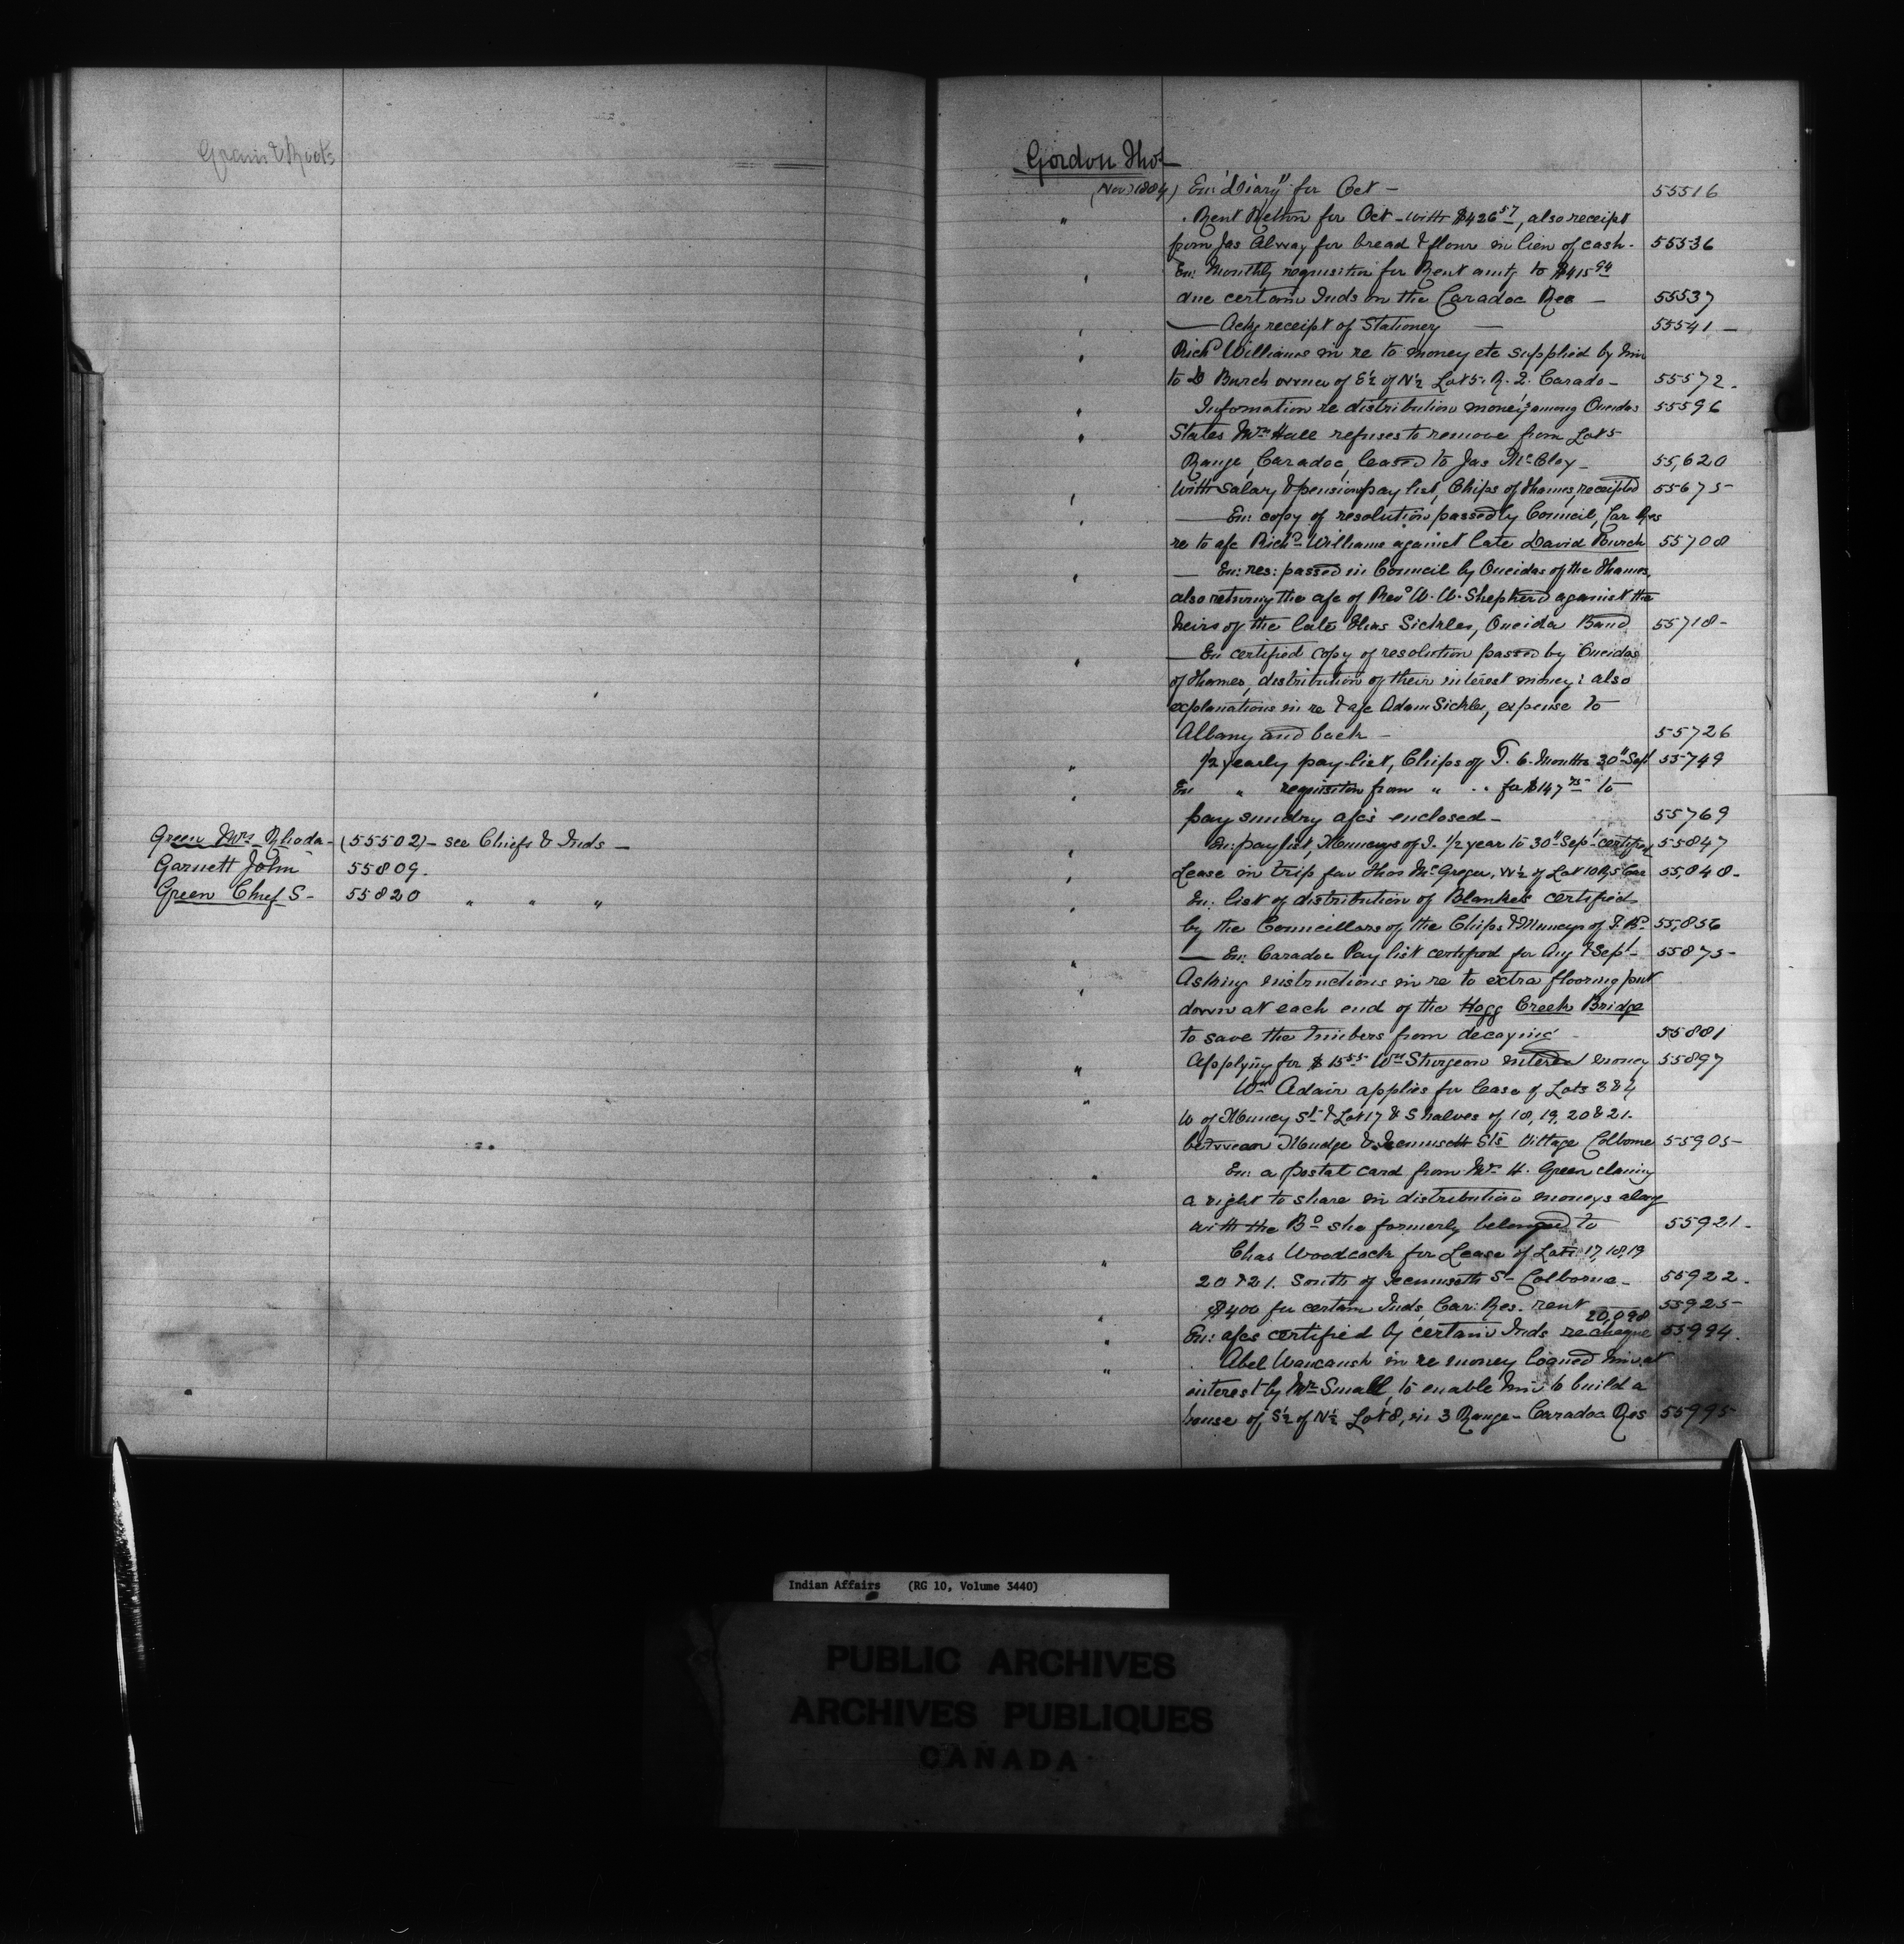 Grain & Roots
Green Mrs Rhoda - (55502) - see Chiefs & Inds -
Garnett John 55809.
Green Chief S - 55820 " " "
Gordon Thos
(Nov 1884) En: "Diary" for Oct - 55516
" Rent Return for Oct - with $426 57, also receipt
from Jas Alway for bread & flour in lieu of cash - 55536
" En: Monthly requisition for Rent amtg to $415 94
due certain Inds on the Caradoc Res - 55537
" - Ackg receipt of Stationery - 55541 -
" Richd Williams in re to money etc supplied by him
to D Burch owner of S½ of N½ Lot 5. R. 2. Carado - 55572 -
" Information re distribution moneys among Oneidas 55596
" States Wm Hall refuses to remove from Lot 5
Range, Caradoc, leased to Jas McCloy - 55,620
" With Salary & pension pay list, Chips of Thames, receipted 55675
" - En: copy of resolution passed by Council, Car Res
re to a/c Richd Williams against late David Burch 55708
" - En: res: passed in Council by Oneidas of the Thames,
also returning the a/c of Revd W. W. Shepherd against the
heirs of the late Elias Sickles, Oneida Band 55718 -
" - En certified copy of resolution passed by Oneidas
of Thames, distribution of their interest money: also
explanations in re to a/c Adam Sickles, expense to
Albany and back - 55726
" ½ yearly pay-list, Chips of T. 6 Months 30" Sept 55749
" En " requisition from " " for $147 75 to
pay sundry a/cs enclosed - 55769
" En: pay list, Munceys of T. 1/2 year to 30" Sept certified 55847
" Lease in trip fav Thos McGregor, W½ of Lot 10 R, 5 Car 55,848 -
" En: list of distribution of Blankets certified
by the Councillors of the Chips & Munceys of T. Bd. 55,856
" - En: Caradoc Pay list certified for Aug & Sept - 55875 -
" Asking instructions in re to extra flooring put
down at each end of the Hogg Creek Bridge
to save the timbers from decaying - 55881
" Applying for $15 55 Wm Sturgeon interest money 55897
" Wm Adair applies for lease of Lots 3 & 4
W of Muncey St & Lot 17 & S halves of 18, 19, 20 & 21.
between Mudge & Tecumseth Sts Village Colborne 55905 -
" En: a postal card from Mrs H. Green claiming
a right to share in distribution moneys along
with the Bd she formerly belonged to 55921 -
" Chas Woodcock for Lease of Lots 17, 18, 19
20 & 21. South of Tecumseth St Colborne - 55922 -
" $400 for certain Inds, Car: Res. rent 55925 -
" En: a/cs certified by certain Inds re cheque 20,098 55,994.
" Abel Waucaush in re money loaned him at
interest by Mr Small, to enable him to build a
house of S½ of N½ Lot 8, in 3 Range - Carradoc Res 55995 -
Indian Affairs (RG 10, Volume 3440)
PUBLIC ARCHIVES
ARCHIVES PUBLIQUES
CANADA